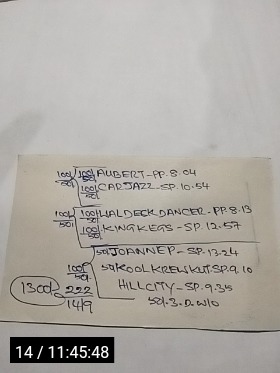 100/50/ 100/ AUBERT-PP.8.04
100/50/ CARJAZZ-SP.10.54
100/50/ 100/50/ WALDECK DANCER-PP.8.13
100/50/ KINGKEGS-SP.12.57
50/ JOANNEP-SP.13.24
100/50/ 50/ KOOLKREWKUT-SP.9.10
1300/ 222 HILLCITY-SP.9.35
1419 50/.3.D.W/O
14 / 11:45:48